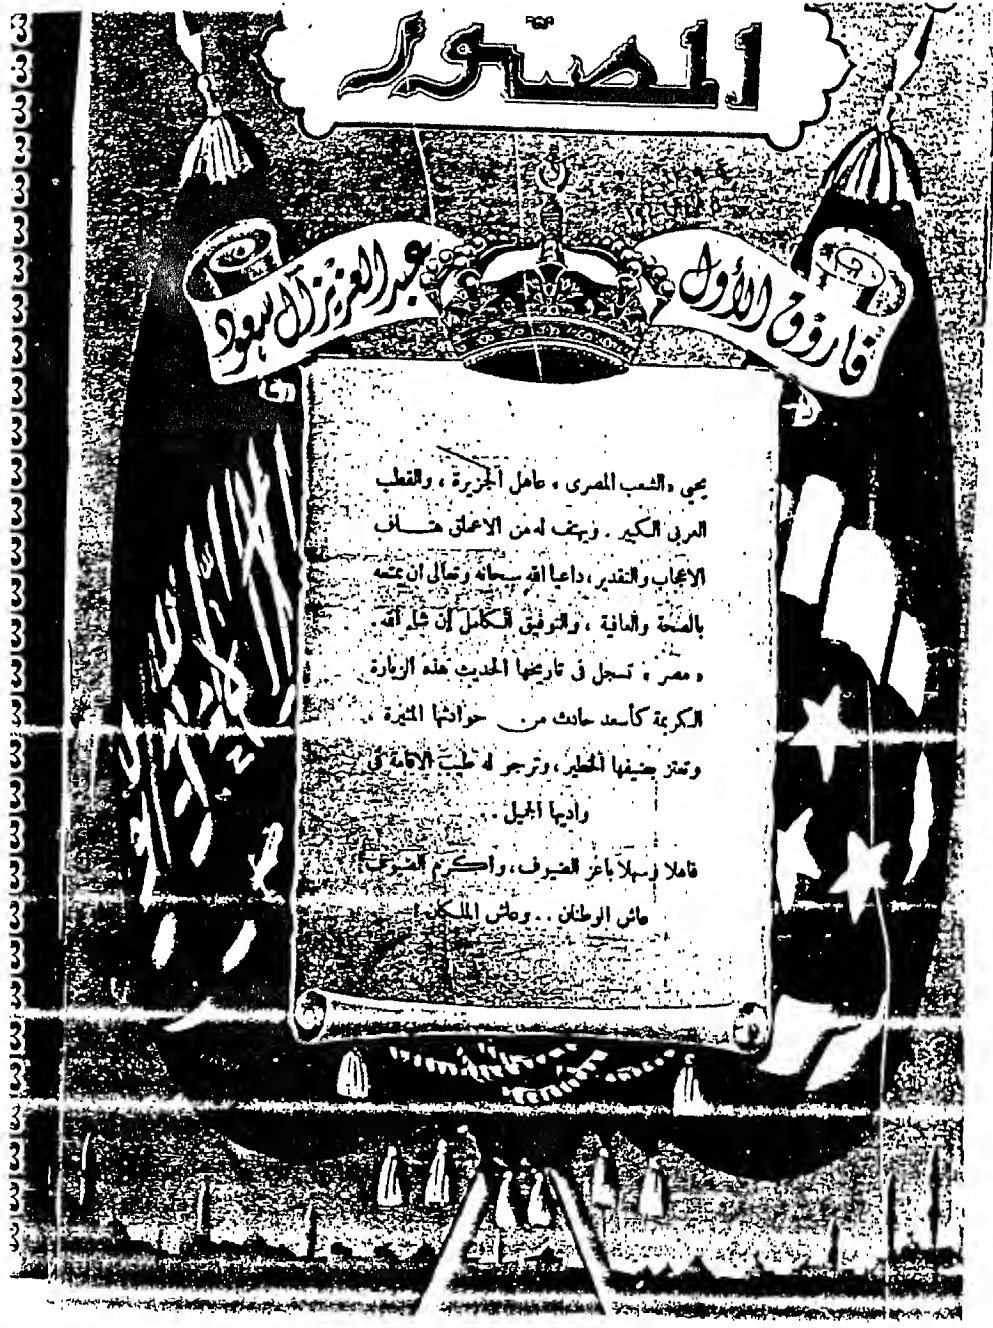 المصور
فاروق الأول
عبد العزيز آل سعود
يحيى « الشعب المصرى » عاهل الجزيرة ، والقطب
العربى الكبير . ويهتف له من الاعماق هتــاف
الاعجاب والتقدير ، داعيا الله سبحانه وتعالى أن يمتعه
بالصحة والعافية ، والتوفيق الكامل إن شاء الله .
« مصر » تسجل فى تاريخها الحديث هذه الزيارة
الكريمة كأسعد حادث من حوادثها المثيرة ،
وتعتز بضيفها الخطير ، وترجو له طيب الاقامة فى
واديها الجميل . .
فاهلا وسهلا بأعز الضيوف ، وأكرم الضيوف
عاش الوطنان . . وعاش الملكان !